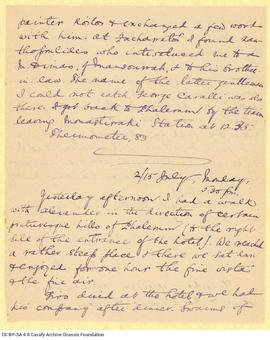 painter Roilos & exchanged a few words
with him; at Zacharatos' I found Xan-
thopoulides who introduced me to a
Mr Dimas, of Mansourah, & to his brother
in law. The name of the latter gentleman
I could not catch. George Cavalli was also
there. I got back to Phalerum by the train
leaving Monastiraki Station at 12.35
Thermometer, 83
2/15 July, Monday,
3.30 p.m.
Yesterday afternoon I had a walk
with Alexander in the direction of certain
picturesque hills of Phalerum (to the right
hill of the entrance of the hotel). We reached
a rather steep place & there we sat down
& enjoyed for one hour the fine vista
& the fine air.
dined at the hotel & we had
his company after dinner.
CC BY-SA 4.0 Cavafy Archive Onassis Foundation